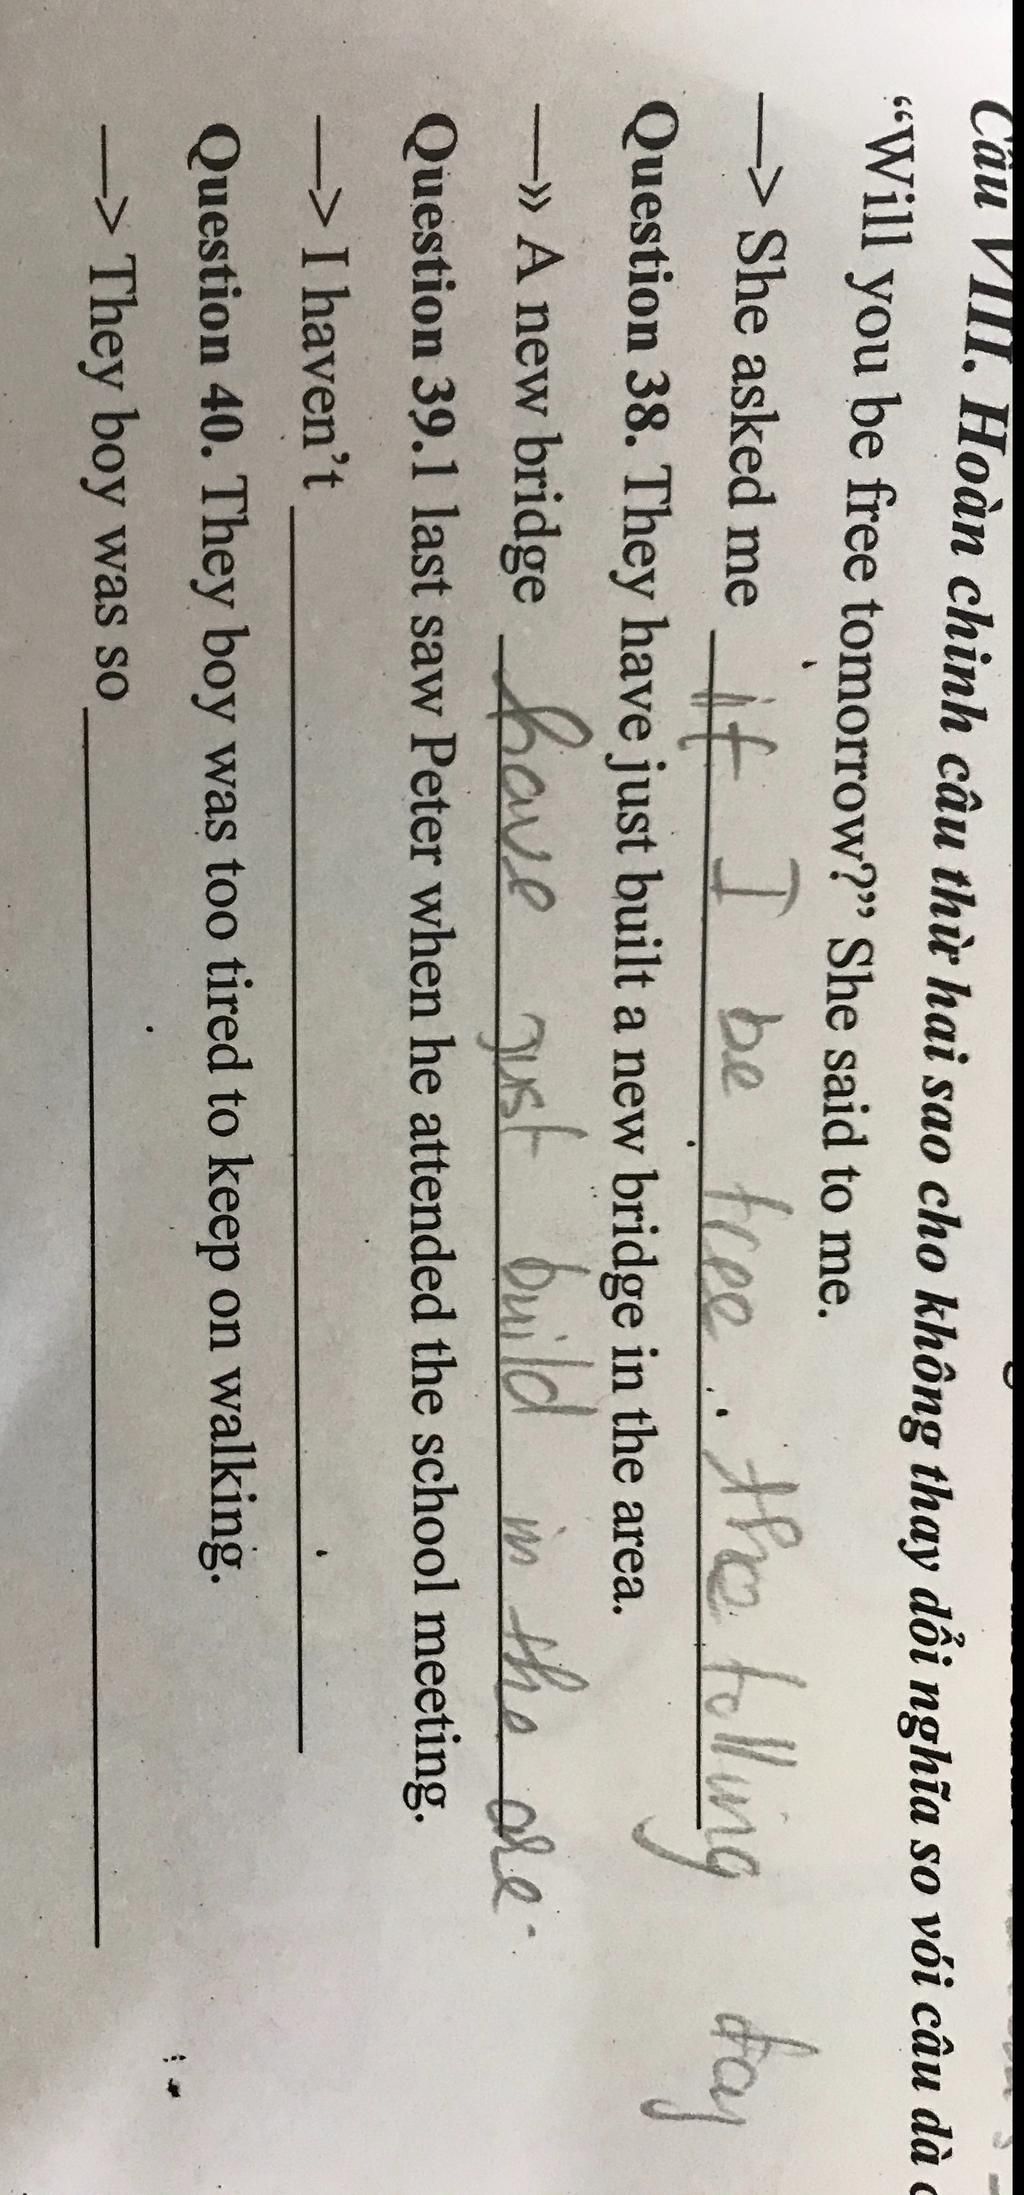 Câu VIII. Hoàn chỉnh câu thừ hai sao cho không thay dổi nghĩa so với câu dà
“Will you be free tomorrow?” She said to me.
—> She asked me if I be free the folling day
Question 38. They have just built a new bridge in the area.
—» A new bridge have just build in the are.
Question 39.1 last saw Peter when he attended the school meeting.
—> I haven’t
Question 40. They boy was too tired to keep on walking.
—> They boy was so